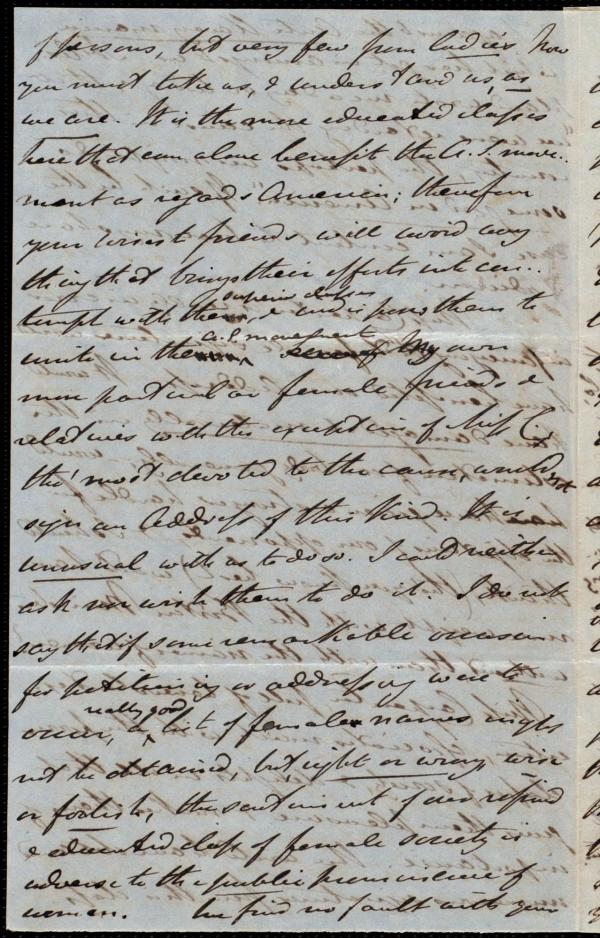 of persons, but very few from ladies. Now
you must take us, & understand us, as
we are. It is the more educated classes
here that can alone benefit the A. S. move..
ment as regards America; therefore
your wisest friends will avoid any
thing that brings their efforts into con..
tempt with the superior classes, & indisposes them to
unite in the a. S. movement. My own
more particular female friends &
relatives with the exception of Miss C,
tho' most devoted to the cause, would not
sign an Address of this kind. It is
unusual with us to do so. I could neither
ask nor wish them to do it. I do not
say that if some remarkable occasion
for petitioning or addressing were to
occur, a really good list of female names might
not be obtained, but, right or wrong, wise
or foolish, the sentiment of our refined
& educated class of female society is
adverse to the public prominence of
women. We find no fault with your